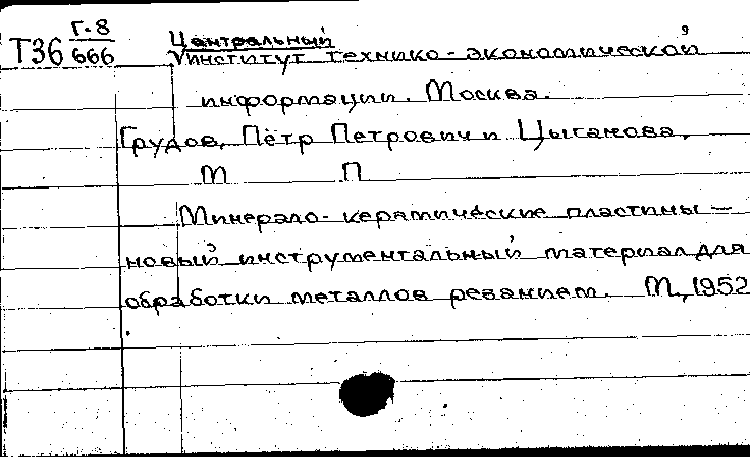 Т36 Г.8
666
Центральный
институт технико-экономической
информации. Москва.
Грудов, Пётр Петрович и Цыганова,
М П
Минерало-керамические пластины —
новый инструментальный материал для
обработки металлов резанием. М., 1952